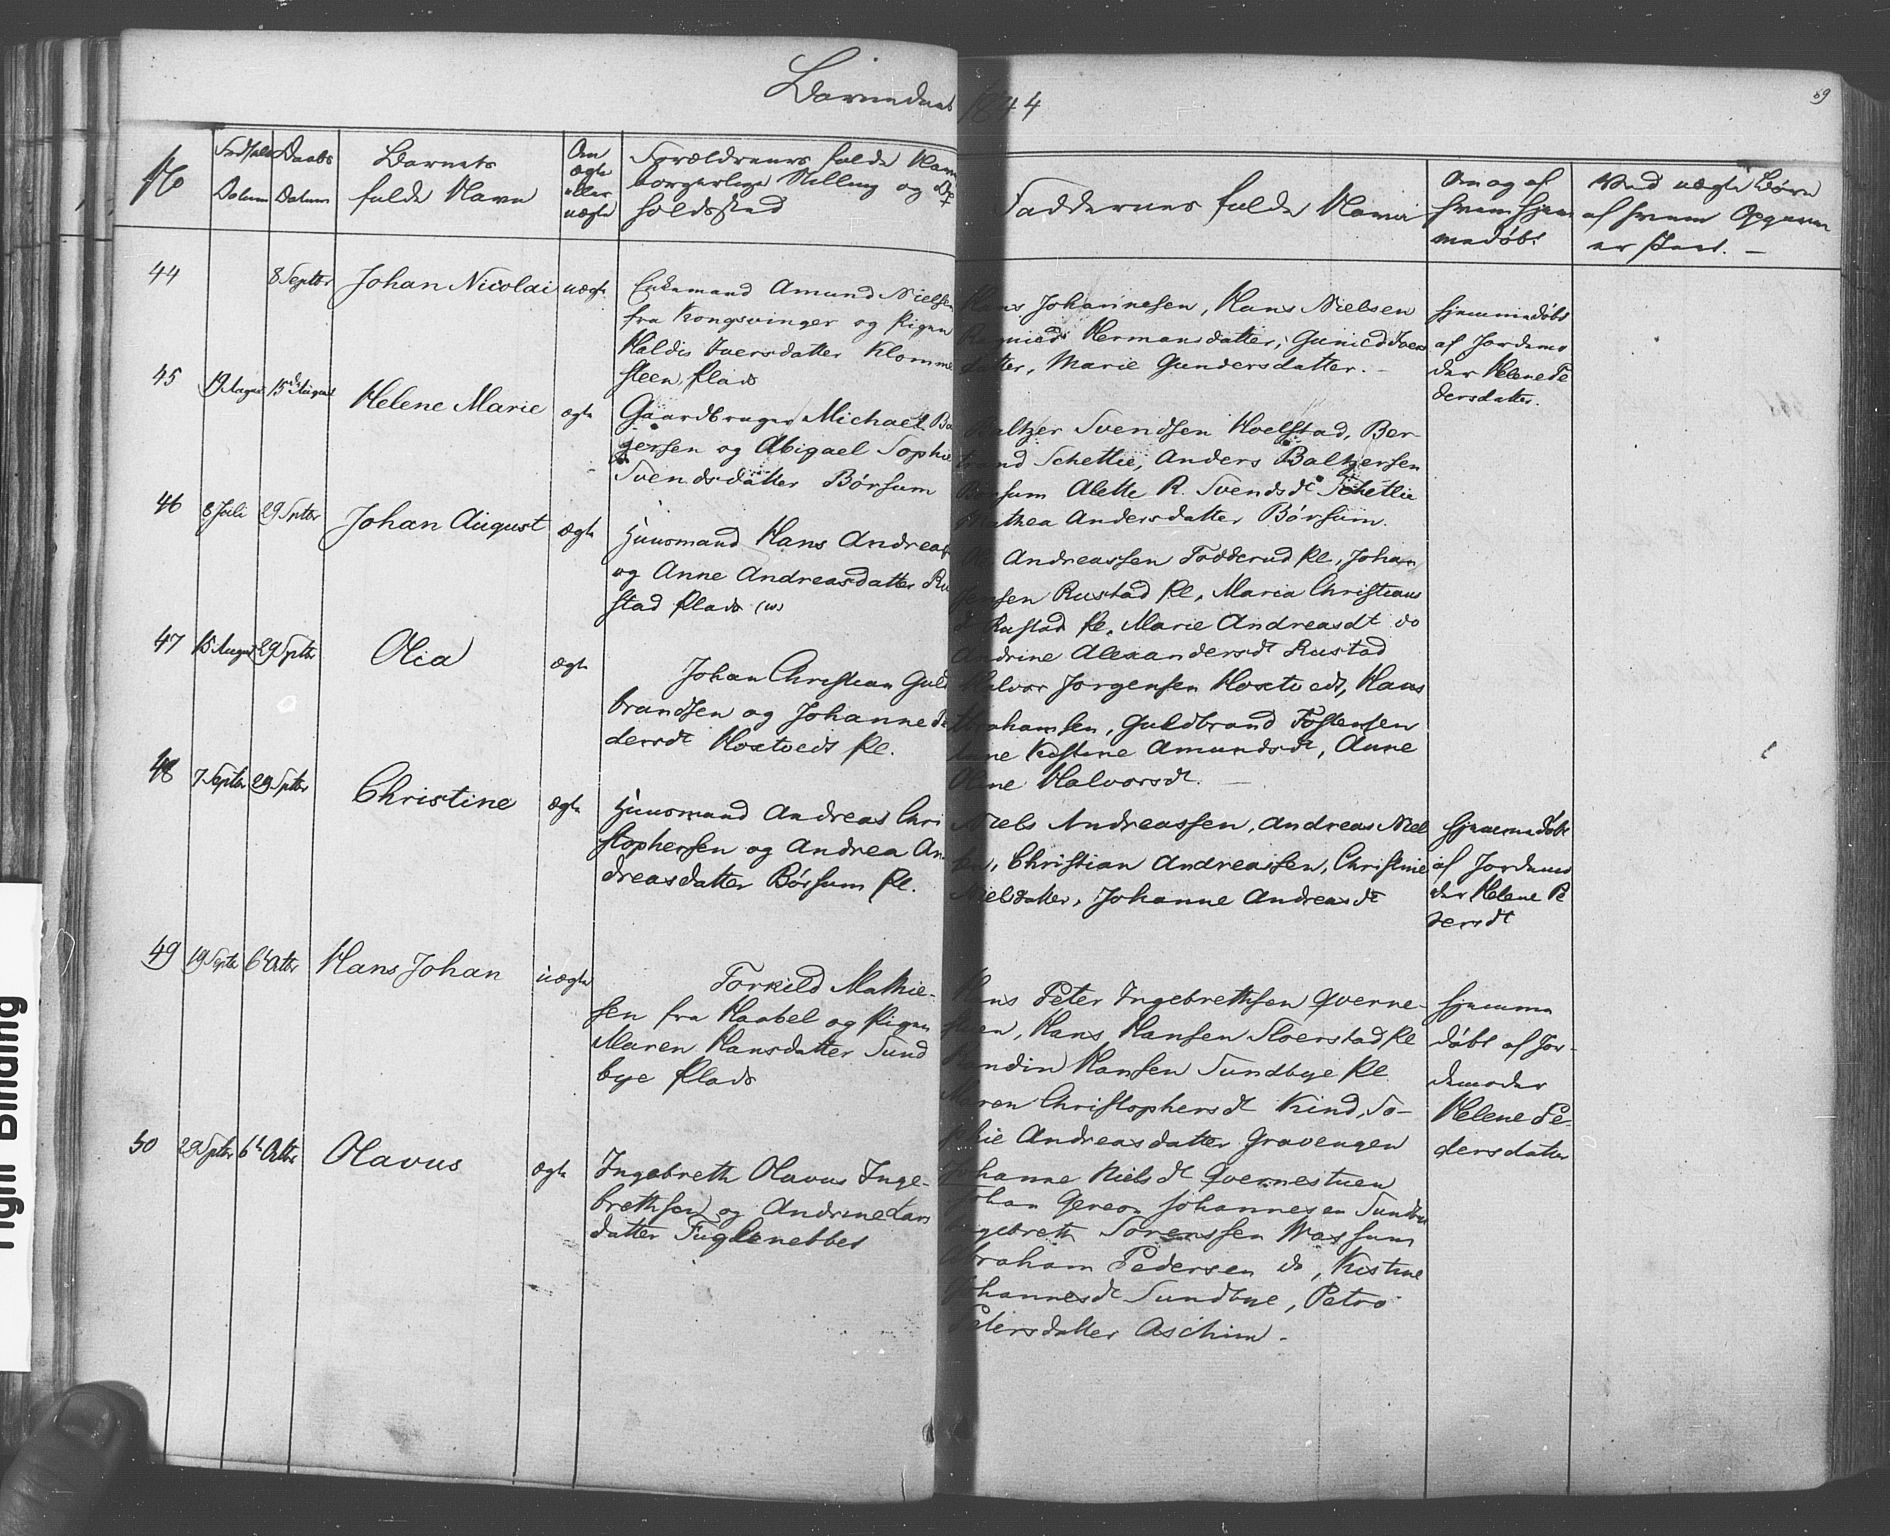 Barnedaab 1844
69
No
Fødsels Datum
Daabs Datum
Barnets fulde Navn
Om ægte eller uægte
Forældrenes fulde Navn
borgerlige Stilling og Op
holdssted
Faddernes fulde Navn
Om og af
hvem hjem
medøbt
Ved uægte Børn
af hvem Opgaven
er skeet. —
44
8 Septbr
Johan Nicolai
uægt
Enkemand Amund Nielsen
fra Kongsvinger og Pigen
Haldis Iversdatter Klomme
steen, plads
Hans Johannesen, Hans Nielsen
Hermansdatter, Ivers
datter, Marie Gundersdatter. -
hjemmedøbt
af Jordemo
der Helene Pe
dersdatter.
45
19 August
Helene Marie
ægte
Gaardbruger Michael Ba
gersen og Abigael Sophie
Svendsdatter Børsum
Baltzer Svendsen Hoelstad, Ber
trand Schetlie, Anders Baltzersen
Børsum Alette R. Svendsdt Schetlie
Mathea Andersdatter Børsum.
46
8 Juli
29 Sptbr
Johan August
ægte
Huusmand Hans Andreas
og Anne Andreasdatter Ru
stad plads
Andreassen Fodderud pl, Johan
Rustad pl, Maria Christians
d Rustad pl, Marie Andreasdt do
Andrine Alexandersdt Rustad
47
15 August
29 Sptbr
Olia
ægte
Johan Christian Guld
brandsen og Johanne Pe
dersdt Hoxtvedt pl.
Halvor Jørgensen Hoxtvedt, Hans
Abrahamsen, Guldbrand Tostensen
Anne Kistine Amundsdt, Anne
Oline Halvorsdt. —
48
7 Septbr
29 Sptbr
Christine
ægte
Huusmand Andreas Chri
stophersen og Andrea An
dreasdatter Børsum pl.
Niels Andreassen, Andreas Niel
sen, Christian Andreassen, Christine
Nielsdatter, Johanne Andreasdt
hjemmedøbt
af Jordemo
der Helene Pe
dersdt
49
19 Septbr
6te Octbr
Hans Johan
uægte
Torkild Mathie-
sen fra Haabel og Pigen
Maren Hansdatter Sund
bye plads
Hans Peter Ingebrethsen Qverne-
stuen, Hans Hansen Sloerstad pl
Hansen Sundbye pl
Maren Christophersdt Kind, So-
phie Andreasdatter Gravengen
Johanne Nielsdt Qvernestuen
hjemme
døbt af Jor-
demoder
Helene Pe-
dersdatter
50
29 Sptbr
6te Octbr
Olavus
ægte
Ingebreth Olavus Inge-
brethsen og Andrine Lars
datter Fuglenebbet
Johan Gereon Johannesen Sundbye
Ingebreth Sørenssen Wassum
Abraham Pedersen do, Kistine
Johannesdt Sundbye, Petro
Petersdatter Aschim -